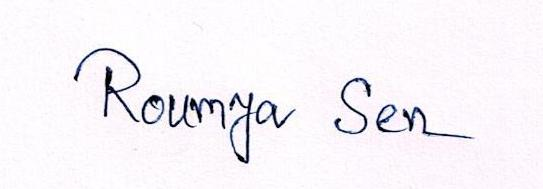 Roumya Sen